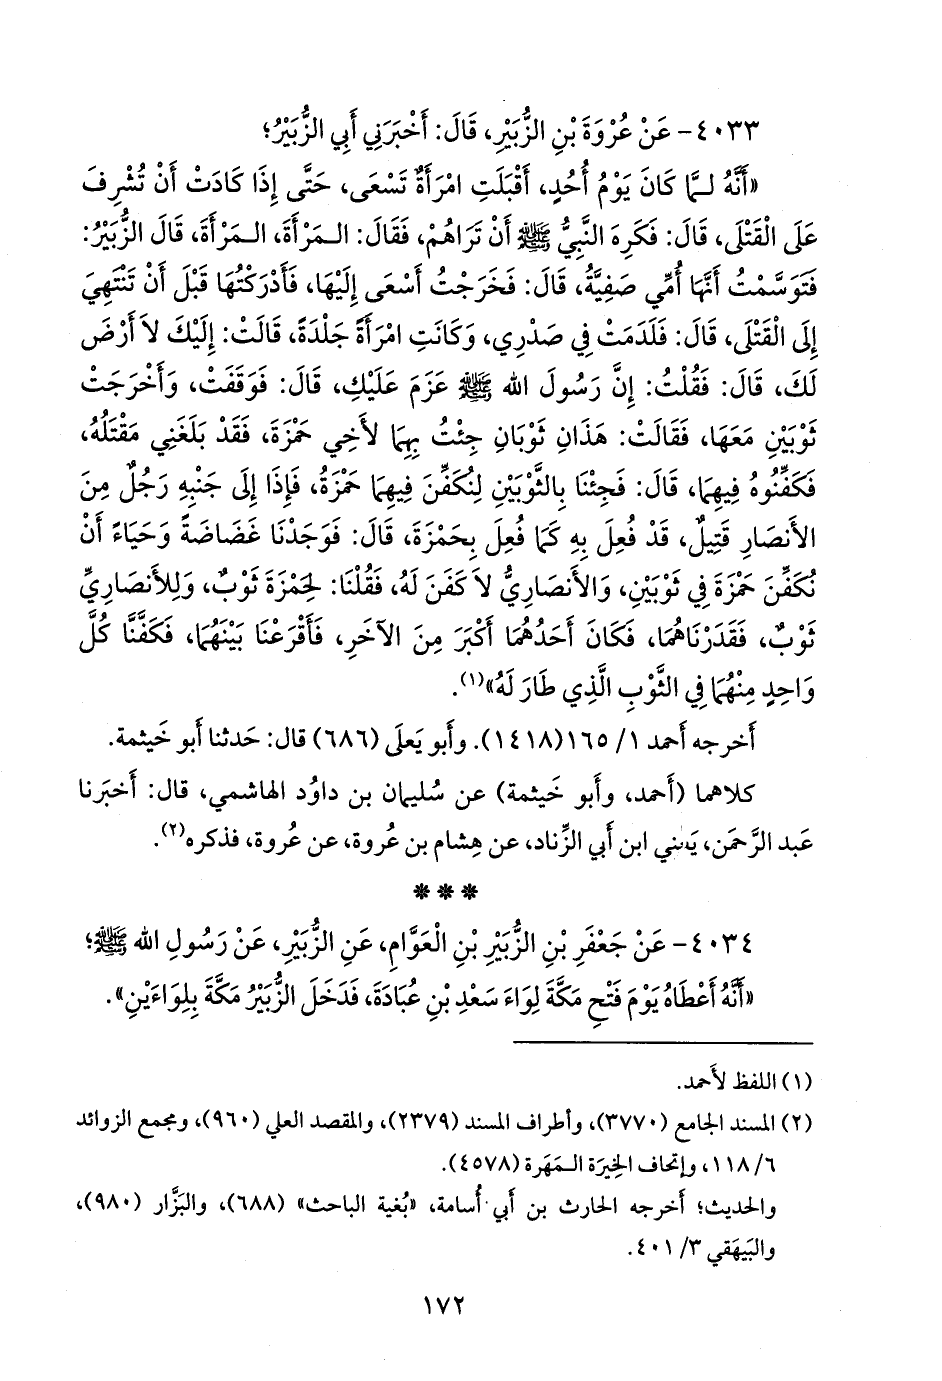 ٤٠٣٣- عَنْ عُرْوَةَ بْنِ الزُّبَيْرِ، قَالَ: أَخْبَرَنِي أَبِي الزُّبَيْرُ؛
«أَنَّهُ لَـمَّا كَانَ يَوْمُ أُحُدٍ، أَقْبَلَتِ امْرَأَةٌ تَسْعَى، حَتَّى إِذَا كَادَتْ أَنْ تُشْرِفَ
عَلَى الْقَتْلَى، قَالَ: فَكَرِهَ النَّبِيُّ ﷺ أَنْ تَرَاهُمْ، فَقَالَ: الـمَرْأَةَ، الـمَرْأَةَ، قَالَ الزُّبَيْرُ:
فَتَوَسَّمْتُ أَنَّهَا أُمِّي صَفِيَّةُ، قَالَ: فَخَرَجْتُ أَسْعَى إِلَيْهَا، فَأَدْرَكْتُهَا قَبْلَ أَنْ تَنْتَهِيَ
إِلَى الْقَتْلَى، قَالَ: فَلَدَمَتْ فِي صَدْرِي، وَكَانَتِ امْرَأَةً جَلْدَةً، قَالَتْ: إِلَيْكَ لاَ أَرْضَ
لَكَ، قَالَ: فَقُلْتُ: إِنَّ رَسُولَ الله ﷺ عَزَمَ عَلَيْكِ، قَالَ: فَوَقَفَتْ، وَأَخْرَجَتْ
ثَوْبَيْنِ مَعَهَا، فَقَالَتْ: هَذَانِ ثَوْبَانِ جِئْتُ بِهِمَا لأَخِي حَمْزَةَ، فَقَدْ بَلَغَنِي مَقْتَلُهُ،
فَكَفِّنُوهُ فِيهِمَا، قَالَ: فَجِئْنَا بِالثَّوْبَيْنِ لِنُكَفِّنَ فِيهِمَا حَمْزَةُ، فَإِذَا إِلَى جَنْبِهِ رَجُلٌ مِنَ
الأَنْصَارِ قَتِيلٌ، قَدْ فُعِلَ بِهِ كَمَا فُعِلَ بِحَمْزَةَ، قَالَ: فَوَجَدْنَا غَضَاضَةً وَحَيَاءً أَنْ
نُكَفِّنَ حَمْزَةَ فِي ثَوْبَيْنِ، وَالأَنْصَارِيُّ لاَ كَفَنَ لَهُ، فَقُلْنَا: لِحَمْزَةَ ثَوْبٌ، وَلِلأَنْصَارِيِّ
ثَوْبٌ، فَقَدَرْنَاهُمَا، فَكَانَ أَحَدُهُمَا أَكْبَرَ مِنَ الآخَرِ، فَأَقْرَعْنَا بَيْنَهُمَا، فَكَفَّنَّا كُلَّ
وَاحِدٍ مِنْهُمَا فِي الثَّوْبِ الَّذِي طَارَ لَهُ»(١).
أَخرجه أَحمد ١/ ١٦٥(١٤١٨). وأَبو يَعلَى (٦٨٦) قال: حَدثنا أَبو خَيثمة.
كلاهما (أَحمد، وأَبو خَيثمة) عن سُليمان بن داوُد الهاشمي، قال: أَخبَرنا
عَبد الرَّحمَن، يَعني ابن أَبي الزِّناد، عن هِشام بن عُروة، عن عُروة، فذكره(٢).
* * *
٤٠٣٤- عَنْ جَعْفَرِ بْنِ الزُّبَيْرِ بْنِ الْعَوَّامِ، عَنِ الزُّبَيْرِ، عَنْ رَسُولِ الله ﷺ؛
«أَنَّهُ أَعْطَاهُ يَوْمَ فَتْحِ مَكَّةَ لِوَاءَ سَعْدِ بْنِ عُبَادَةَ، فَدَخَلَ الزُّبَيْرُ مَكَّةَ بِلِوَاءَيْنِ».
(١) اللفظ لأَحمد.
(٢) المسند الجامع (٣٧٧٠)، وأطراف المسند (٢٣٧٩)، والمقصد العلي (٩٦٠)، ومجمع الزوائد
٦/ ١١٨، وإتحاف الخِيرَة الـمَهَرة (٤٥٧٨).
والحديث؛ أَخرجه الحارث بن أَبي أُسامة، «بُغية الباحث» (٦٨٨)، والبَزَّار (٩٨٠)،
والبَيهَقي ٣/ ٤٠١.
١٧٢